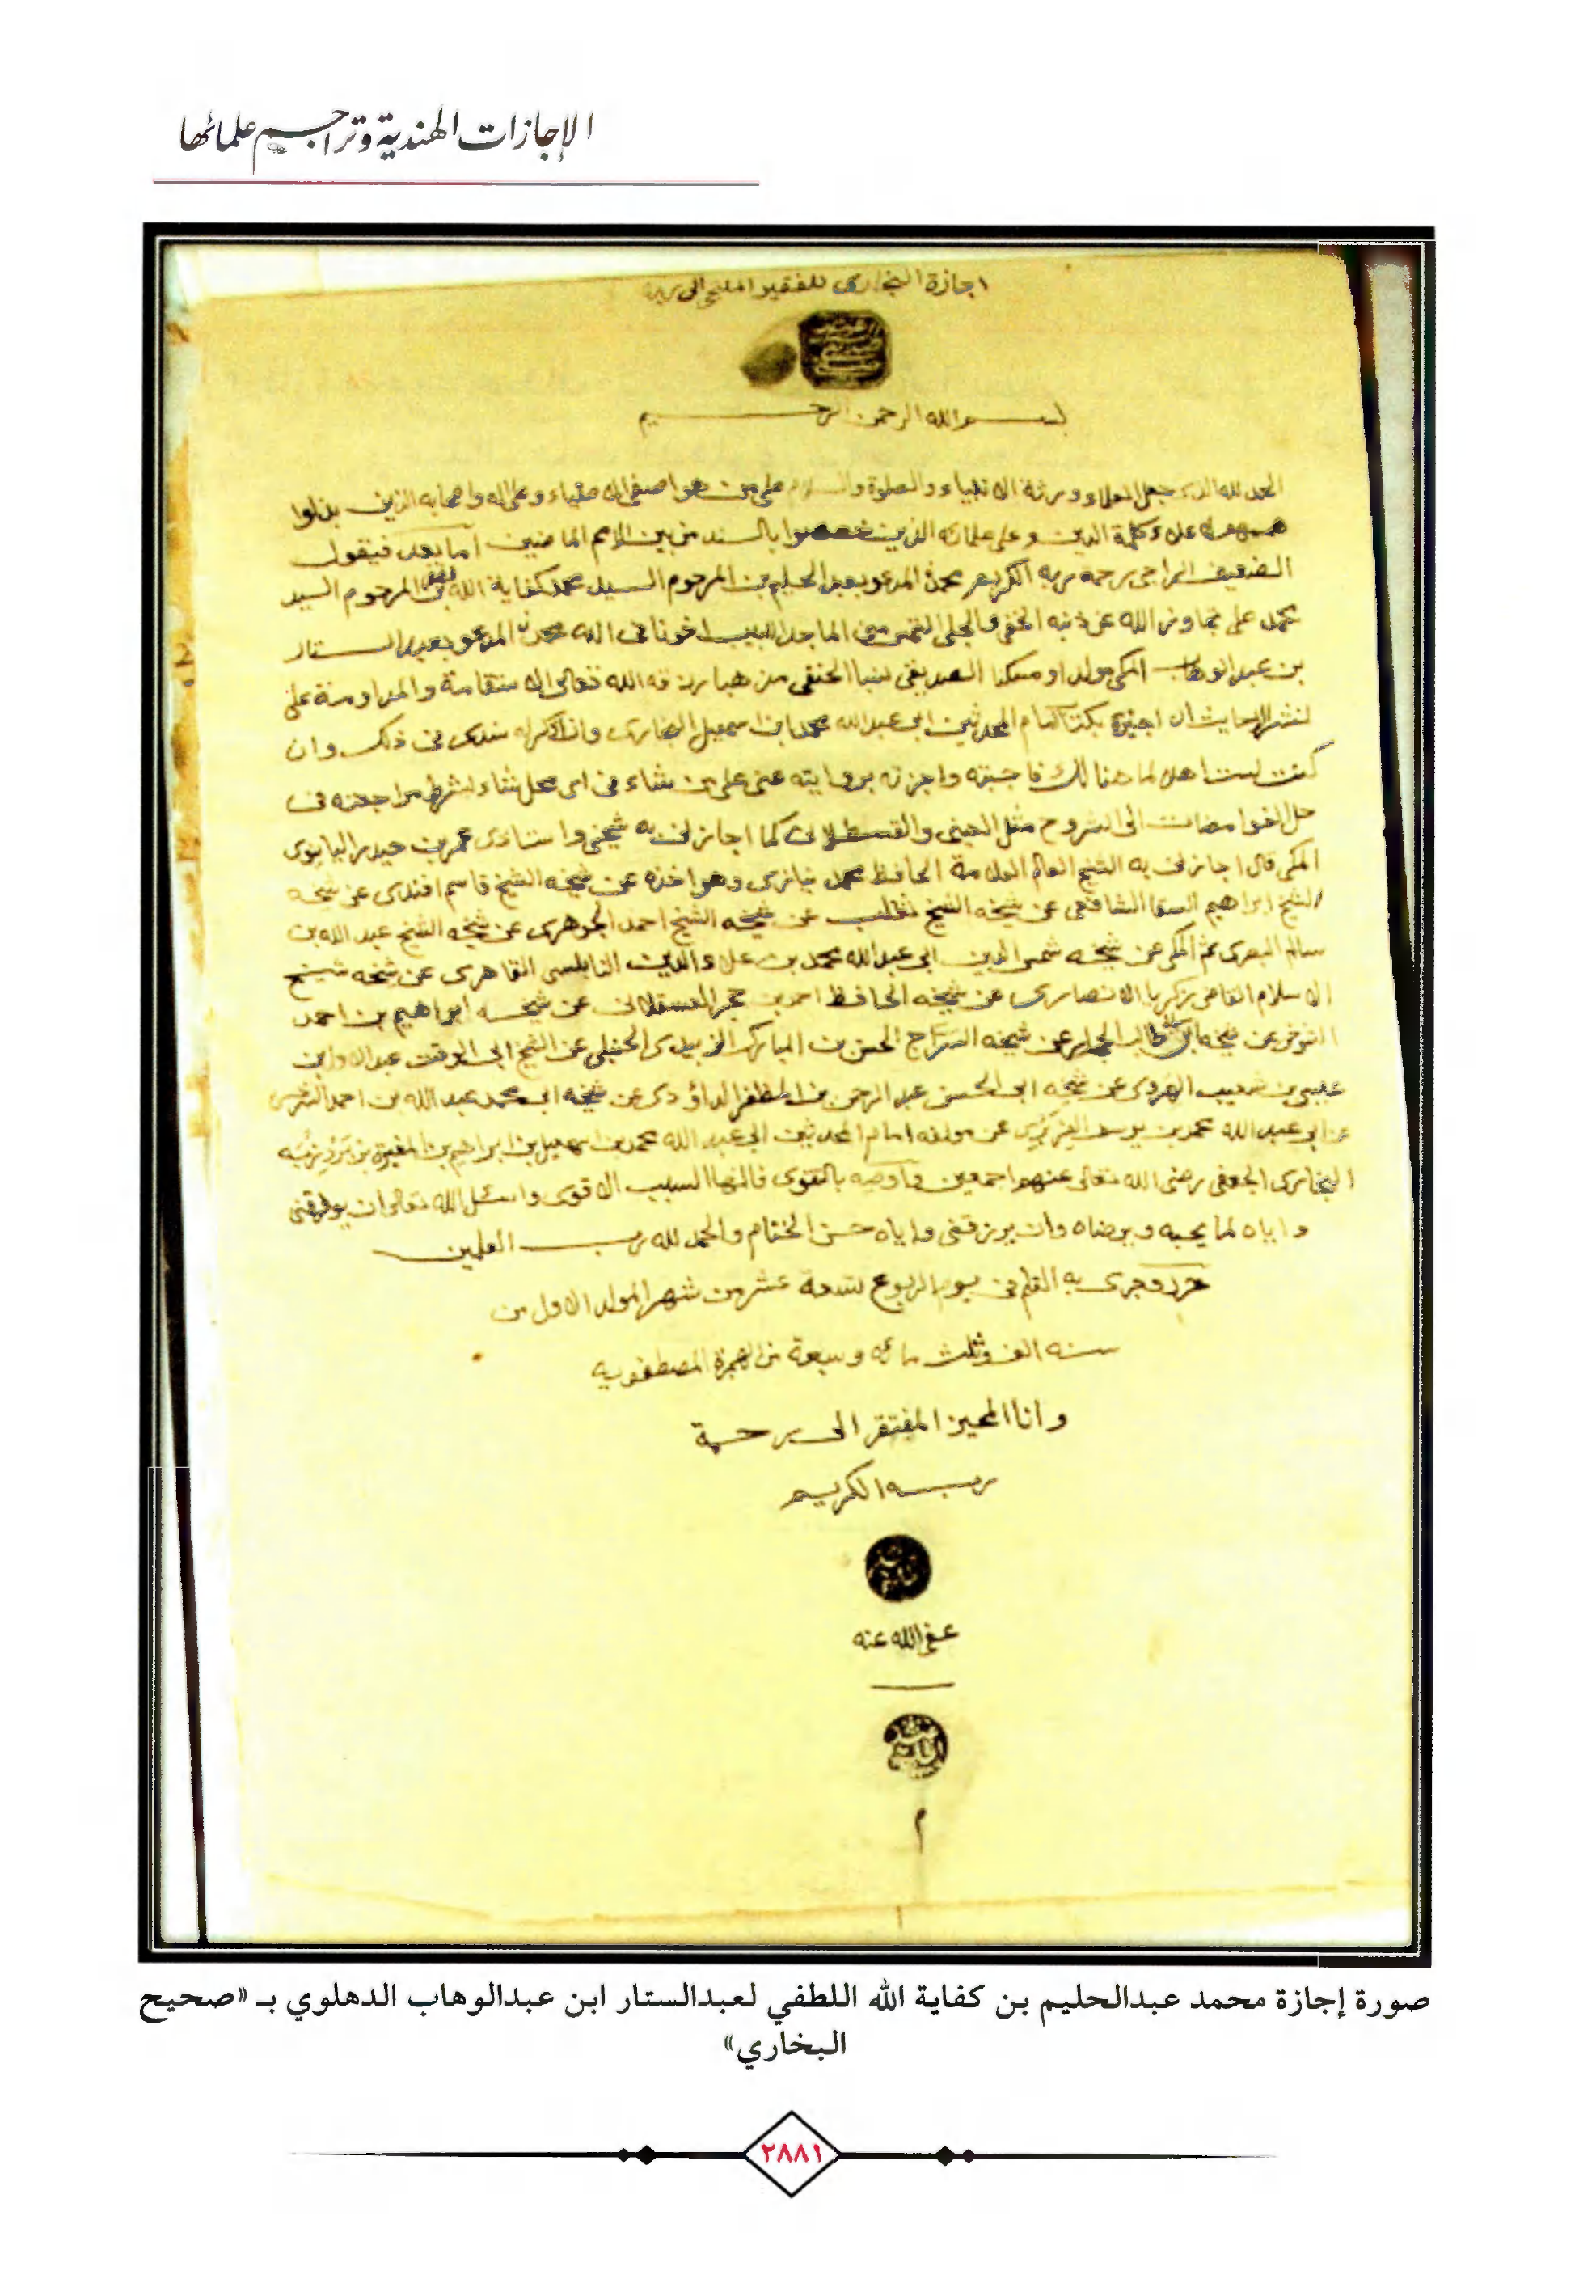 الإجازات الهندية وتراجم علمائها
اجازة البخاري للفقير الملتجي الى
بسم الله الرحمن الرحيم
الحمد لله الذي جعل العلماء ورثة الانبياء والصلوة والسلام على من هو اصفى الاصفياء وعلى اله واصحابه الذين بذلوا
علاء كلمة الدين وعلى علمائه الذين خصصوا بالسند من بين الامم الماضين اما بعد فيقول
الضعيف الراجي رحمة ربه الكريم محمد المدعو بعبد الحليم بن المرحوم السيد محمد كفاية الله بن المرحوم السيد
محمد علي تجاوز الله عن ذنبه الخفي والجلي التمس مني الماجد اللبيب اخونا في الله محمد المدعو بعبد الستار
بن عبد الوهاب المكي مولدا ومسكنا الصديقي نسبا الحنفي مذهبا رزقه الله تعالى الاستقامة والمداومة على
نشر الاحاديث ان اجيزه بكتاب امام المحدثين ابي عبد الله محمد ابن اسمعيل البخاري وان اذكر له سندي في ذلك وان
كنت لست اهلا لما هنالك فاجبته واجزته بروايته عني على من شاء في اي محل شاء بشرط مراجعته في
حل الغوامضات الى الشروح مثل العيني والقسطلاني كما اجازني به شيخي واستاذي عمر بن حيدر
المكي قال اجازني به الشيخ العالم العلامة الحافظ محمد نيازي وهو اخذه عن شيخه الشيخ قاسم افندي عن شيخه
الشيخ ابراهيم السقا الشافعي عن شيخه الشيخ ثعلب عن شيخه الشيخ احمد الجوهري عن شيخه الشيخ عبد الله بن
سالم البصري ثم المكي عن شيخه شمس الدين ابي عبد الله محمد بن علاء الدين القاهري عن شيخه شيخ
الاسلام القاضي زكريا الانصاري عن شيخه الحافظ احمد بن حجر العسقلاني عن شيخه ابراهيم بن احمد
التنوخي عن شيخه ابي طالب الحجار عن شيخه السراج الحسن بن المبارك الزبيدي الحنبلي عن الشيخ ابي الوقت عبد الاول بن
عيسى بن شعيب الهروي عن شيخه ابي الحسن عبد الرحمن بن المظفر الداؤدي عن شيخه ابي محمد عبد الله بن احمد السرخسي
عن ابي عبد الله محمد بن يوسف الفربري عن مولفه امام المحدثين ابي عبد الله محمد بن اسمعيل بن ابراهيم بن المغيرة بن بردزبه
البخاري الجعفي رضي الله تعالى عنهم اجمعين واوصيه بالتقوى فانها السبب الاقوى واسئل الله تعالى ان يوفقني
واياه لما يحبه ويرضاه وان يرزقني واياه حسن الختام والحمد لله رب العلمين
حرر وجرى به القلم في يوم الربوع لتسعة عشر من شهر المولد الاول من
سنه الف وثلث مائه وسبعة من الهجرة المصطفويه
وانا المجيز المفتقر الى رحمة
ربه الكريم
عفى الله عنه
م
صورة إجازة محمد عبدالحليم بن كفاية الله اللطفي لعبدالستار ابن عبدالوهاب الدهلوي بـ «صحيح
البخاري»
٢٨٨١